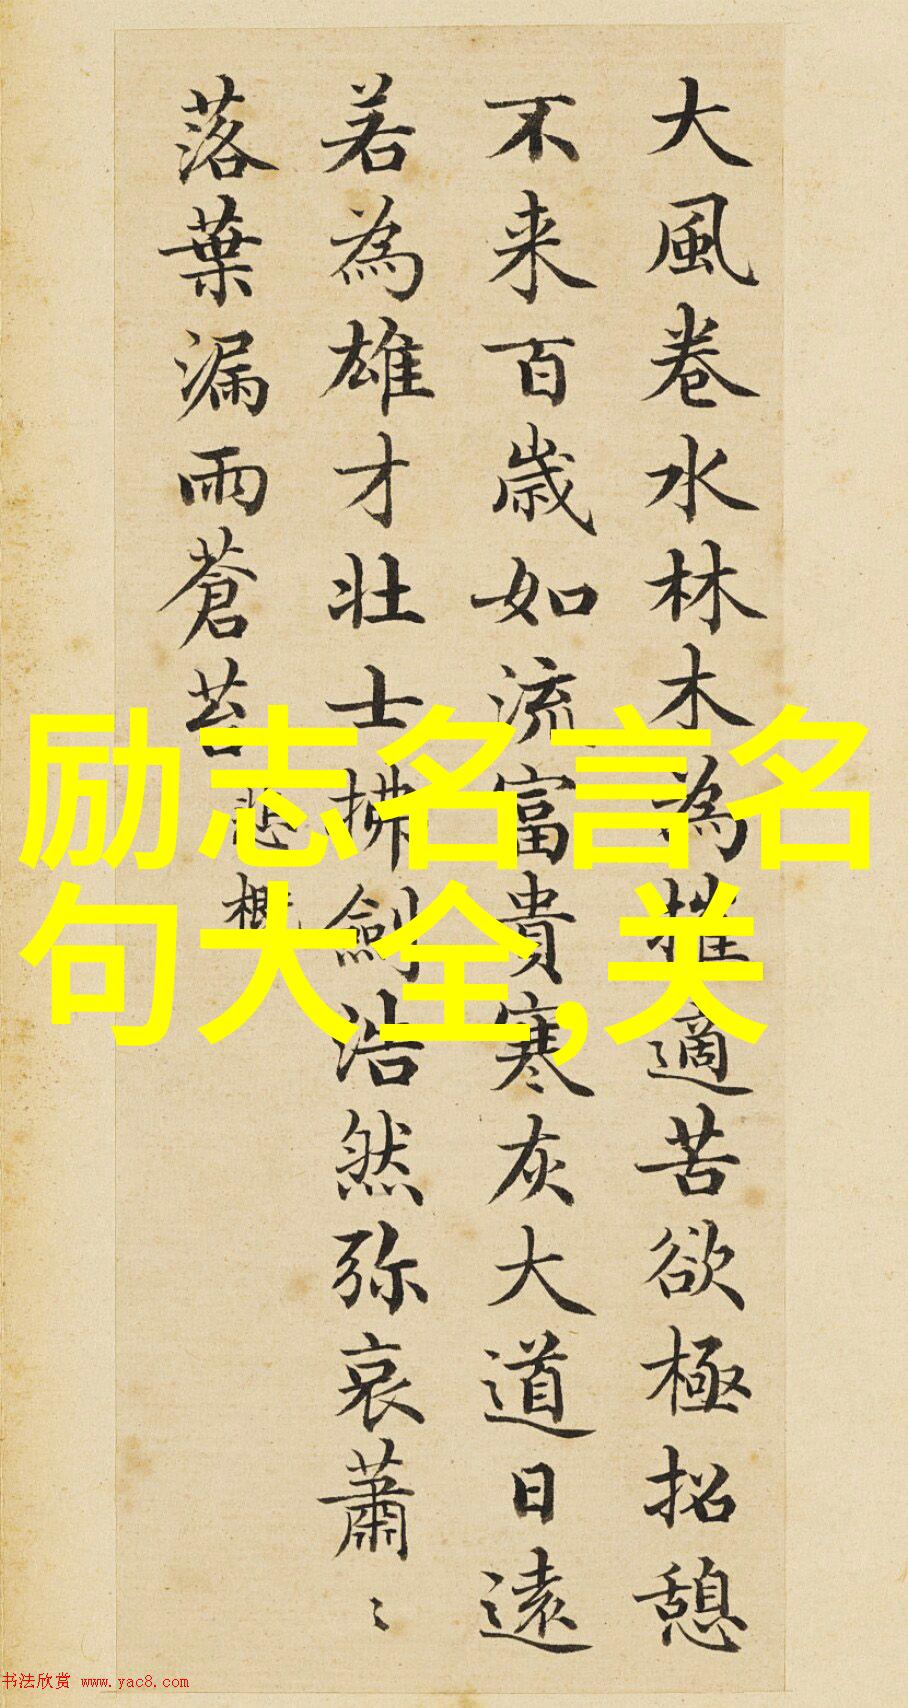 大風卷水林木為摧適苦欲極招憩
不来百歳如流富貴寒灰大道日遠
若為雄才壮士拂劍浩然弥哀蕭〻
落葉漏雨蒼苔
悲概
励志名言名
句大全,关
书法欣赏 www.yac8.com